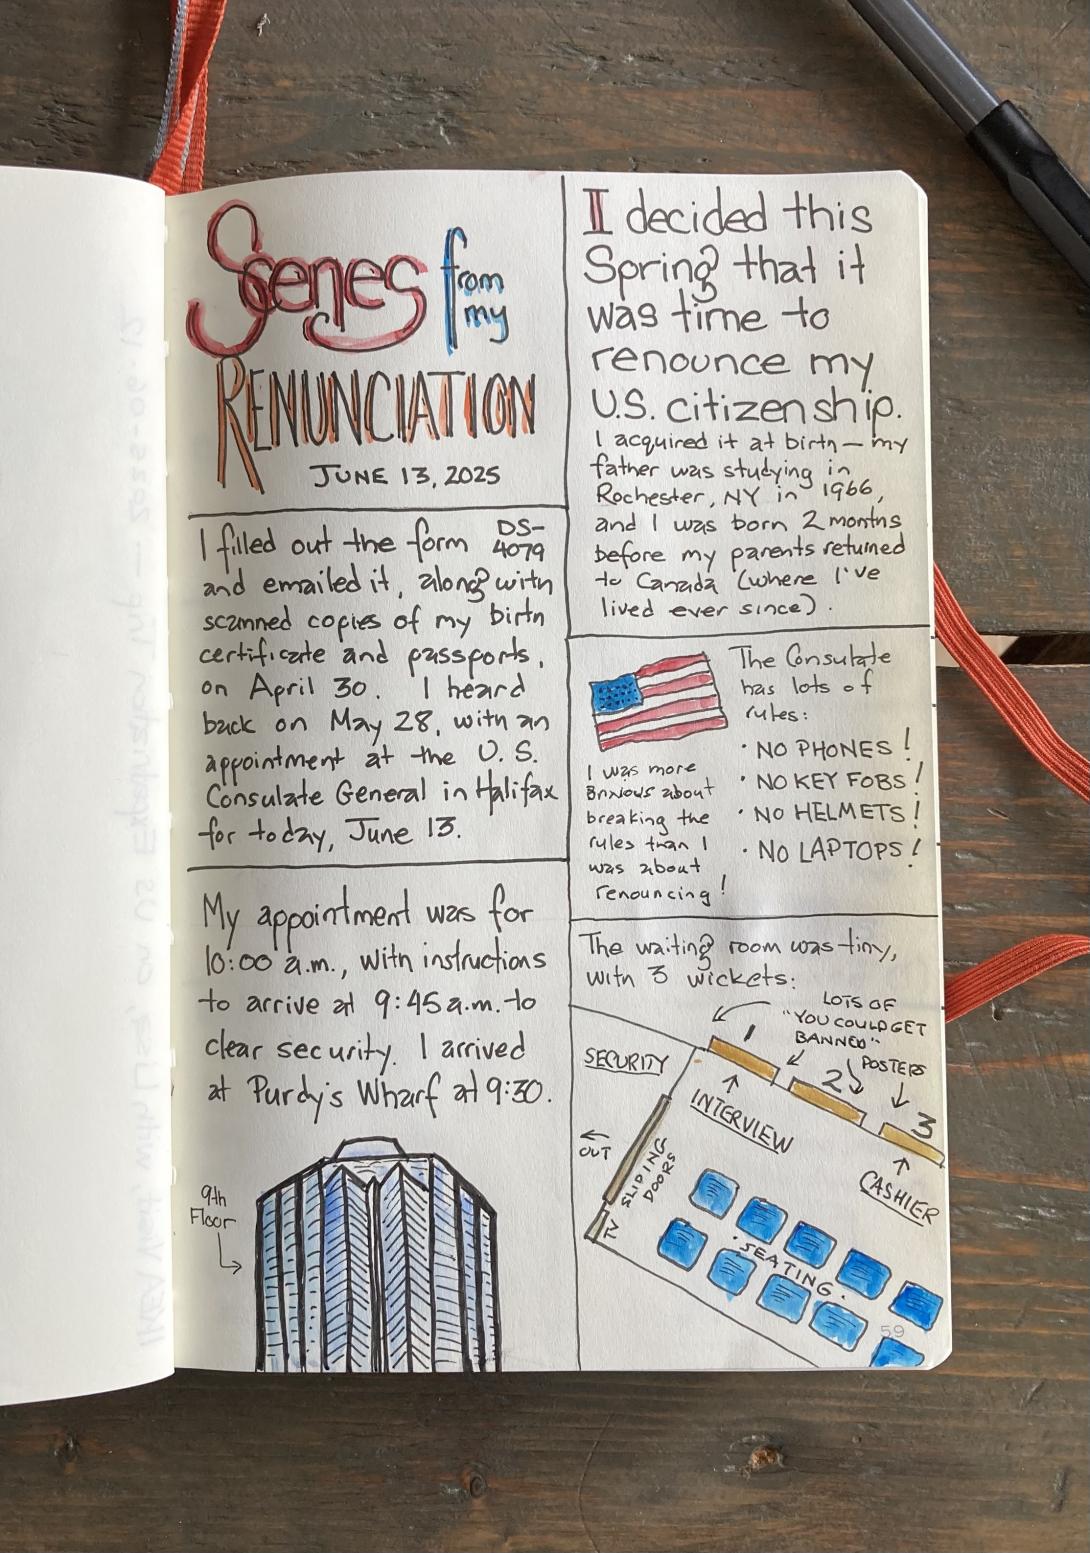 Scenes from
my
RENUNCIATION
JUNE 13, 2025
I filled out the form DS-
4079
and emailed it, along with
scanned copies of my birth
certificate and passports,
on April 30. I heard
back on May 28, with an
appointment at the U.S.
Consulate General in Halifax
for today, June 13.
My appointment was for
10:00 a.m., with instructions
to arrive at 9:45 a.m. to
clear security. I arrived
at Purdy's Wharf at 9:30.
9th
Floor
I decided this
Spring that it
was time to
renounce my
U.S. citizenship.
I acquired it at birth — my
father was studying in
Rochester, NY in 1966,
and I was born 2 months
before my parents returned
to Canada (where I've
lived ever since).
The Consulate
has lots of
rules:
· NO PHONES!
· NO KEY FOBS!
· NO HELMETS!
· NO LAPTOPS!
I was more
anxious about
breaking the
rules than I
was about
renouncing!
The waiting room was tiny,
with 3 wickets:
LOTS OF
"YOU COULD GET
BANNED"
POSTERS
SECURITY
1
2
3
INTERVIEW
CASHIER
OUT
SLIDING
DOORS
TV
· SEATING ·
59